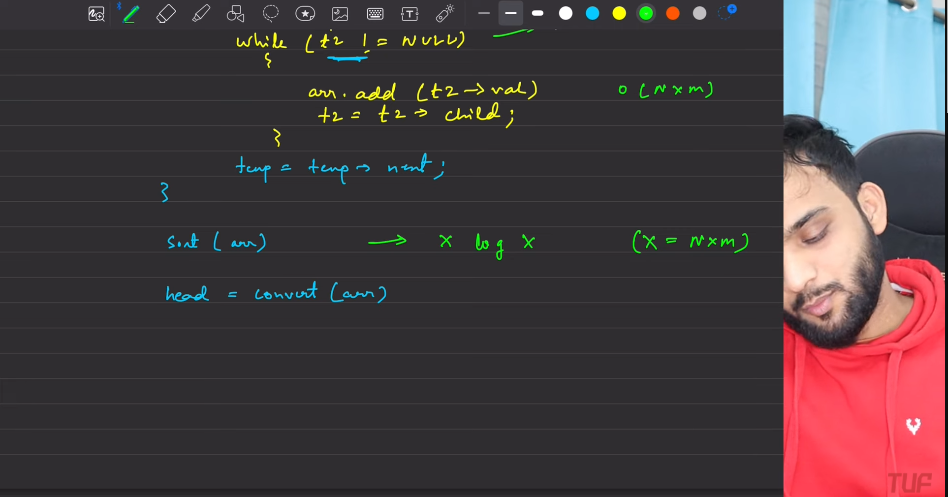 while (t2 != NULL)
{
arr.add (t2→val) O(N×m)
t2 = t2→child;
}
temp = temp→next;
}
sort (arr) → x log x (x = N×m)
head = convert (arr)
TUF